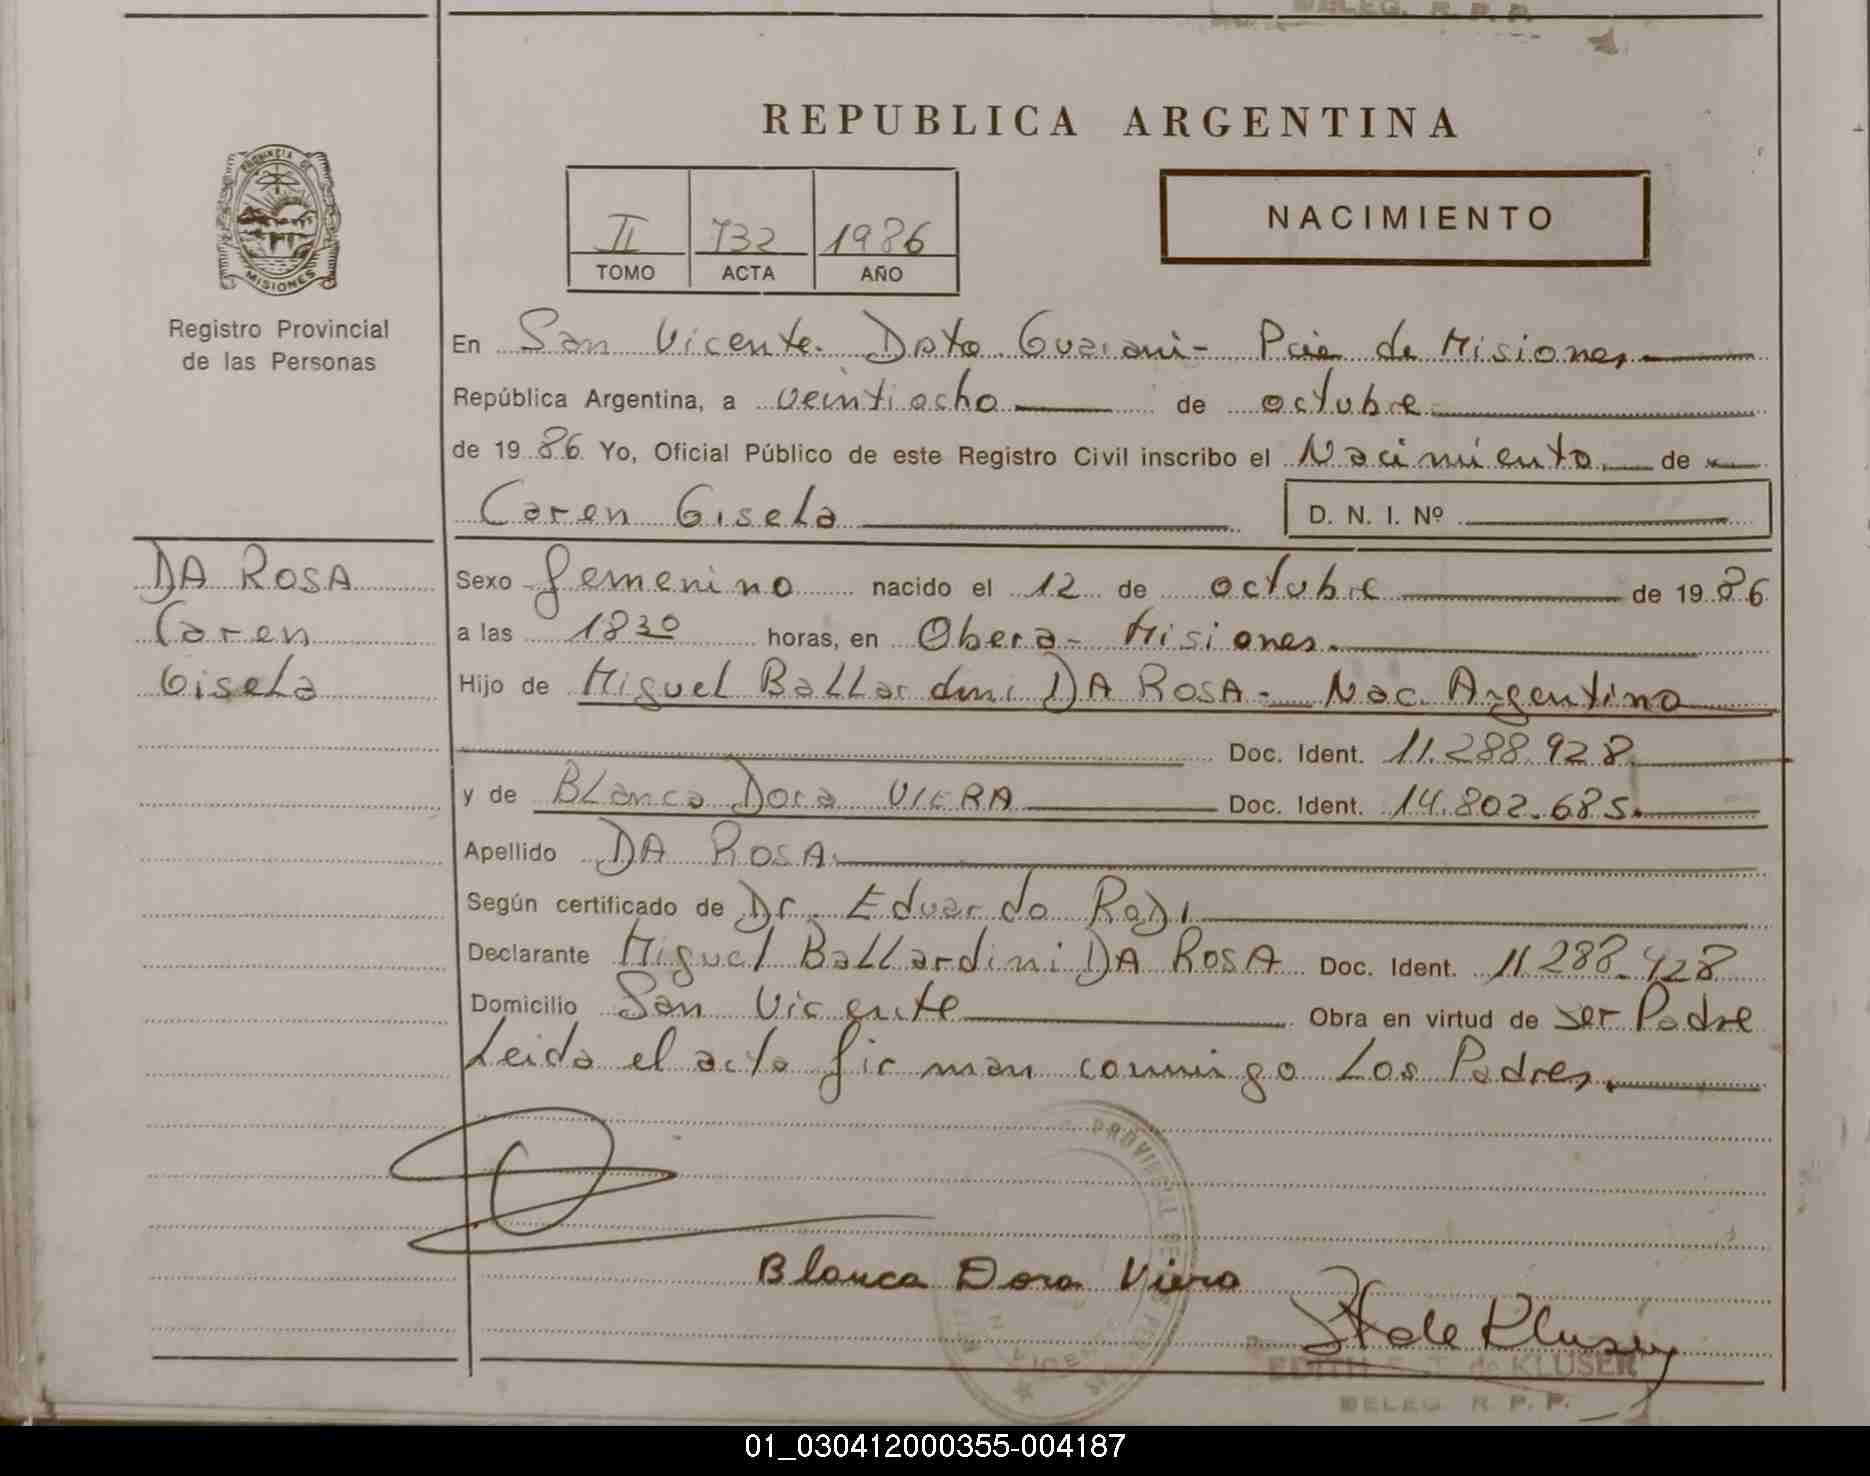 DELEG. R. P. P.
REPUBLICA ARGENTINA
PROVINCIA DE
MISIONES
Registro Provincial
de las Personas
II 732 1986
TOMO ACTA AÑO
NACIMIENTO
En San Vicente. Dpto. Guarani- Pcia de Misiones
República Argentina, a veintiocho de octubre
de 1986 Yo, Oficial Público de este Registro Civil inscribo el Nacimiento de
Caren Gisela D. N. I. Nº
DA ROSA
Caren
Gisela
Sexo femenino nacido el 12 de octubre de 1986
a las 18 30 horas, en Obera- Misiones.
Hijo de Miguel Ballardini DA ROSA- Nac. Argentino
Doc. Ident. 11.288.928.
y de Blanca Dora VIERA Doc. Ident. 14.802.685.
Apellido DA ROSA.
Según certificado de Dr. Eduardo
Declarante Miguel Ballardini DA ROSA Doc. Ident. 11.288.928
Domicilio San Vicente Obra en virtud de ser Padre
Leida el acta firman conmigo Los Padres.
Blanca Dora Viera
de Kluser
EDITH E. T. de KLUSER
DELEG. R. P. P.
01_030412000355-004187